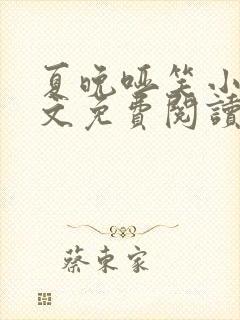 夏晚哑笑小
文免費閱讀
蔡東家